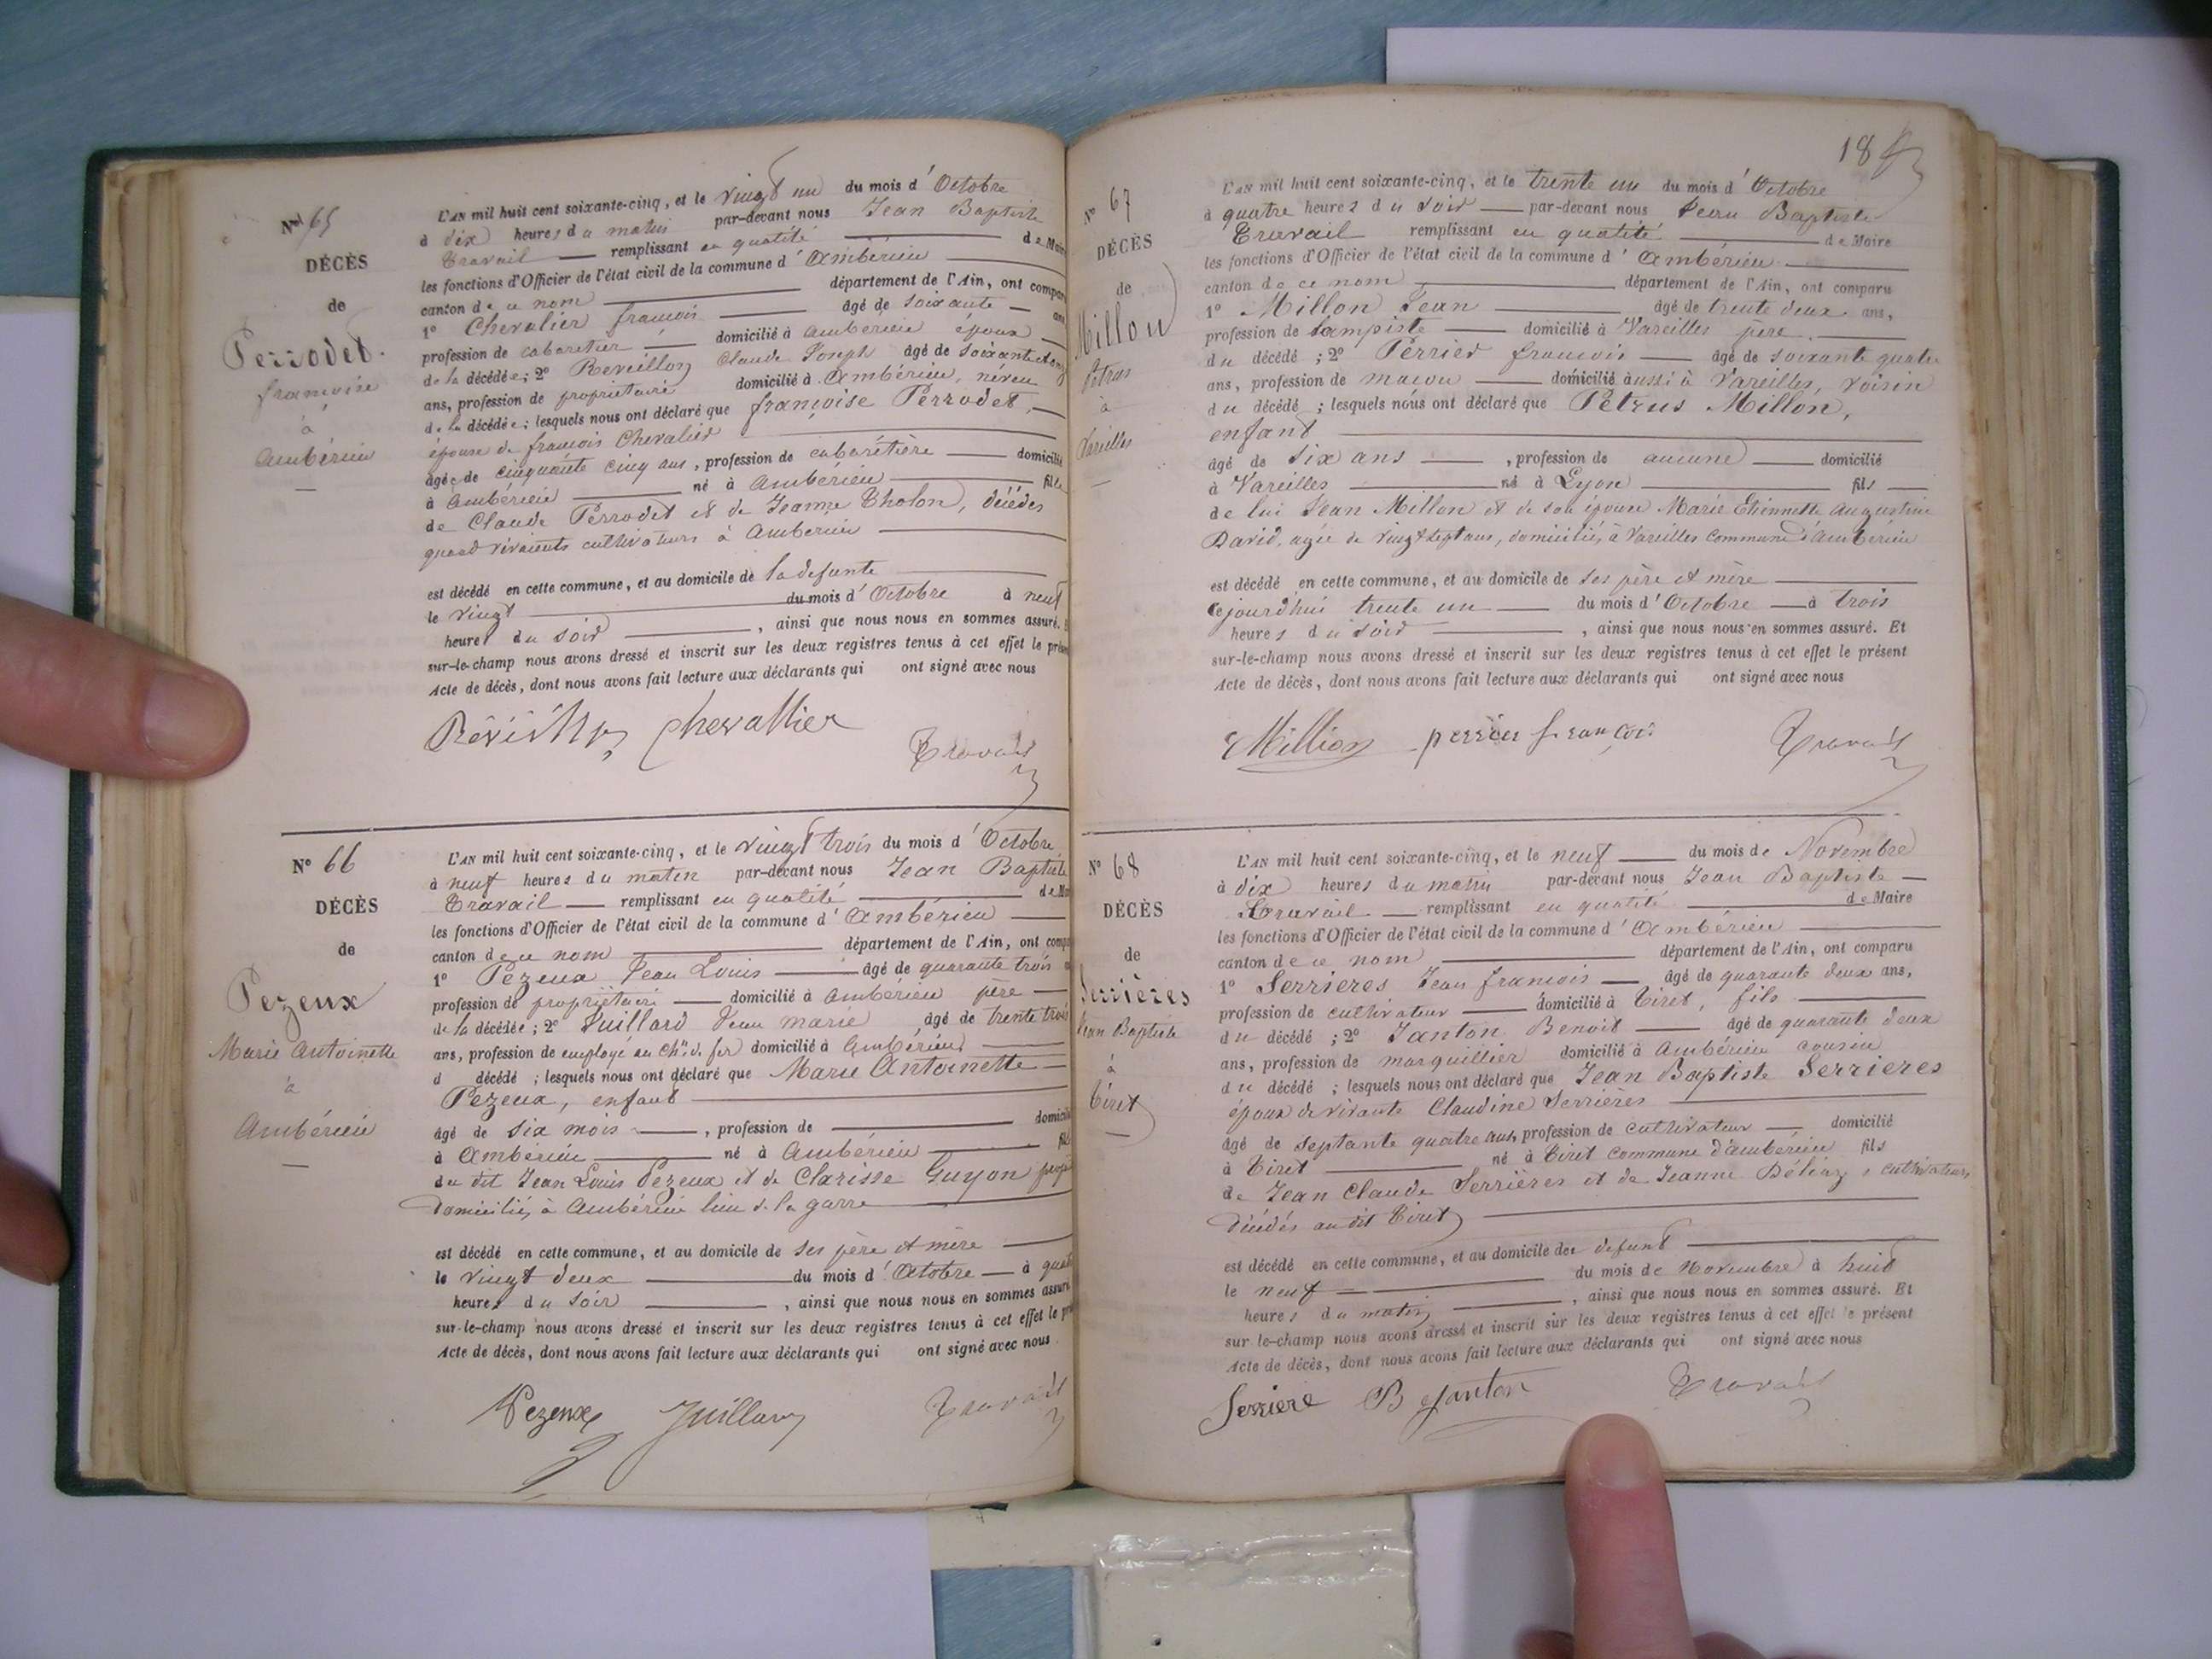 Nº 65
DÉCÈS
de
Perrodet
françoise
à
Ambérieu
L'AN mil huit cent soixante-cinq, et le vingt un du mois d'Octobre
à dix heures du matin par-devant nous Jean Baptiste
Travail remplissant en qualité de Maire
les fonctions d'Officier de l'état civil de la commune d'Ambérieu
canton de ce nom département de l'Ain, ont compar
1º Chevalier françois âgé de soixante ans
profession de cabaretier domicilié à Ambérieu époux
de la décédée; 2º Reveillon Claude Joseph âgé de soixante
ans, profession de propriétaire domicilié à Ambérieu, néveu
de la décédée; lesquels nous ont déclaré que françoise Perrodet,
épouse de françois Chevalier
âgée de cinquante cinq ans, profession de cabarétière domicilié
à Ambérieu né à Ambérieu fille
de Claude Perrodet et de Jeanne Tholon, décédés
quand vivaients cultivateurs à Ambérieu
est décédé en cette commune, et au domicile de la defunte
le vingt du mois d'Octobre à neuf
heures du soir, ainsi que nous nous en sommes assuré.
sur-le-champ nous avons dressé et inscrit sur les deux registres tenus à cet effet le prése
Acte de décès, dont nous avons fait lecture aux déclarants qui ont signé avec nous
Chevallier Travail
Nº 66
DÉCÈS
de
Pezeux
Marie Antoinette
à
Ambérieu
L'AN mil huit cent soixante-cinq, et le vingt trois du mois d'Octobre
à neuf heures du maten par-devant nous Jean Baptiste
Travail remplissant en qualité de Ma
les fonctions d'Officier de l'état civil de la commune d'Ambérieu
canton de ce nom département de l'Ain, ont compa
1º Pezeux Jean Louis âgé de quarante trois
profession de propriétaire domicilié à Ambérieu père
de la décédée; 2º Juillard Jean marie âgé de trente trois
ans, profession de employé au chin d. fer domicilié à Ambérieu
d décédé; lesquels nous ont déclaré que Marie Antoinette
Pezeux, enfant
âgé de six mois, profession de domicilié
à Ambérieu né à Ambérieu fil
du dit Jean Louis Pezeux et de Clarisse Guyon prop
domiciliés à Ambérieu lieu de la garre
est décédé en cette commune, et au domicile de ses père et mère
le vingt deux du mois d'Octobre à quat
heures du soir, ainsi que nous nous en sommes assuré
sur-le-champ nous avons dressé et inscrit sur les deux registres tenus à cet effet le pré
Acte de décès, dont nous avons fait lecture aux déclarants qui ont signé avec nous
Pezeux Juillard Travail
18
Nº 67
DÉCÈS
de
Millon
Pétrus
à
Vareilles
L'AN mil huit cent soixante-cinq, et le trente un du mois d'Octobre
à quatre heures du soir par-devant nous Jean Baptiste
Travail remplissant en qualité de Maire
les fonctions d'Officier de l'état civil de la commune d'Ambérieu
canton de ce nom département de l'Ain, ont comparu
1º Millon Jean âgé de trente deux ans,
profession de Lampiste domicilié à Vareilles père
du décédé; 2º Perrier françois âgé de soixante quatre
ans, profession de maçon domicilié aussi à Vareilles, voisin
du décédé; lesquels nous ont déclaré que Pétrus Millon,
enfant
âgé de six ans, profession de aucune domicilié
à Vareilles né à Lyon fils
de lui Jean Millon et de son épouse Marie Etiennette Augustine
David, agée de vingt sept ans, domiciliés à Vareilles commune d'Ambérieu
est décédé en cette commune, et au domicile de ses père et mère
cejourd'hui trente un du mois d'Octobre à trois
heures du soir, ainsi que nous nous en sommes assuré. Et
sur-le-champ nous avons dressé et inscrit sur les deux registres tenus à cet effet le présent
Acte de décès, dont nous avons fait lecture aux déclarants qui ont signé avec nous
Million perrier françois Travail
Nº 68
DÉCÈS
de
Serrières
Jean Baptiste
à
Tiret
L'AN mil huit cent soixante-cinq, et le neuf du mois de Novembre
à dix heures du matin par-devant nous Jean Baptiste
Travail remplissant en qualité de Maire
les fonctions d'Officier de l'état civil de la commune d'Ambérieu
canton de ce nom département de l'Ain, ont comparu
1º Serrieres Jean françois âgé de quarante deux ans,
profession de cultivateur domicilié à Tiret, fils
du décédé; 2º Janton Benoit âgé de quarante deux
ans, profession de marguillier domicilié à Ambérieu cousin
du décédé; lesquels nous ont déclaré que Jean Baptiste Serrieres
époux de vivante Claudine Serrières
âgé de septante quatre ans, profession de cultivateur domicilié
à Tiret né à Tiret commune d'ambérieu fils
de Jean Claude Serrières et de Jeanne cultivateurs
décédés au dit Tiret
est décédé en cette commune, et au domicile des defunt
le neuf du mois de Novembre à huit
heures du matin, ainsi que nous nous en sommes assuré. Et
sur le-champ nous avons dressé et inscrit sur les deux registres tenus à cet effet le présent
Acte de décès, dont nous avons fait lecture aux déclarants qui ont signé avec nous
Serriere B Janton Travail